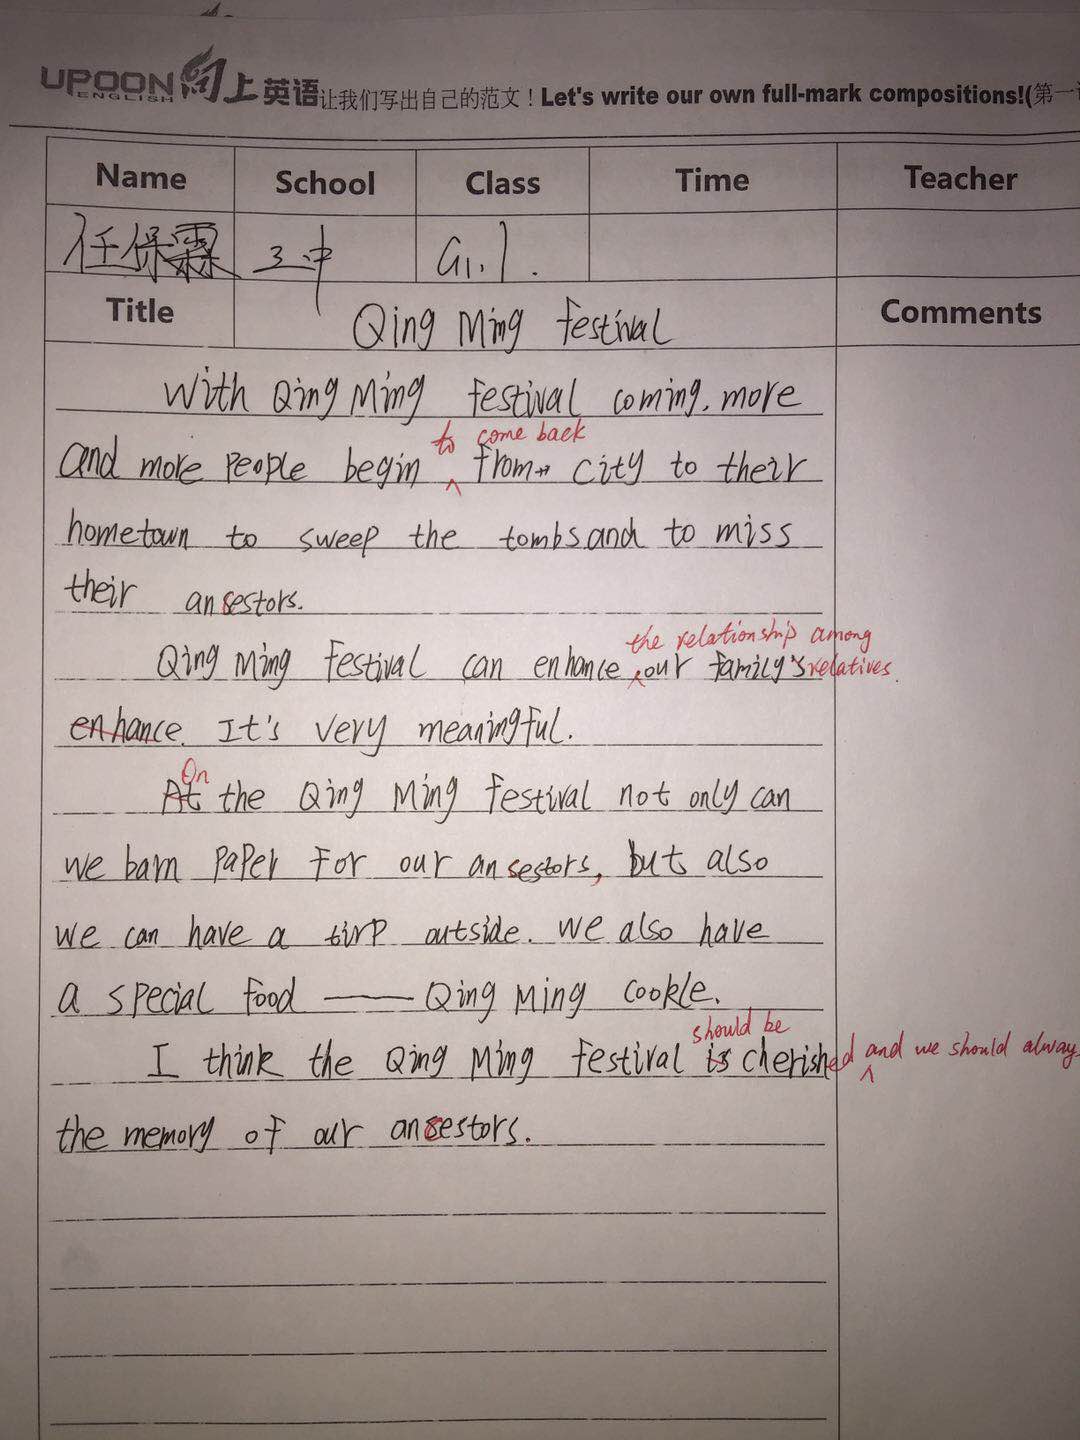 UPOON ENGLISH 向上英语 让我们写出自己的范文！Let's write our own full-mark compositions!(第一
Name School Class Time Teacher
任保霖 三中 G1.1.
Title Qing Ming festival Comments
With Qing Ming festival coming, more
to come back
and more people begin from city to their
hometown to sweep the tombs and to miss
their ancestors.
the relationship among
Qing Ming festival can enhance our family's relatives.
enhance. It's very meaningful.
On
At the Qing Ming festival not only can
we barn paper for our ansestors, but also
we can have a tirp outside. We also have
a special food —— Qing Ming cookle.
should be
I think the Qing Ming festival is cherished and we should alway
the memory of our ancestors.